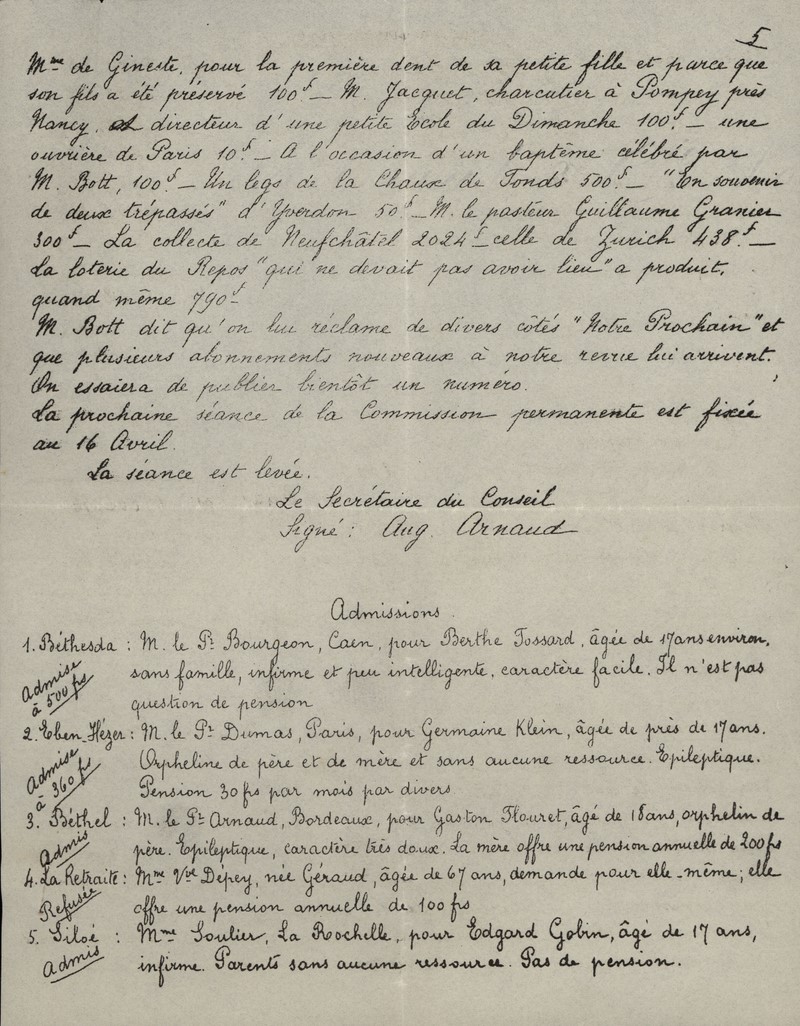 5
Mme de Gineste, pour la première dent de sa petite fille et parce que
son fils a été préservé 100f._ M. Jacquet, charcutier à Pompey près
Nancy, et directeur d'une petite Ecole du Dimanche 100f._ une
ouvrière de Paris 10f._ A l'occasion d'un baptême célébré par
M. Bott, 100f._ Un legs de la Chaux de Fonds 500f._ "En souvenir
de deux trépassés" d'Yverdon 50f._ M. le pasteur Guillaume Granier
300f._ La collecte de Neufchâtel 2024f_ celle de Zurich 438f._
La loterie du Repos "qui ne devait pas avoir lieu" a produit,
quand même 790f.
M. Bott dit qu'on lui réclame de divers côtés "Notre Prochain" et
que plusieurs abonnements nouveaux à notre revue lui arrivent.
On essaiera de publier bientôt un numéro.
La prochaine séance de la Commission permanente est fixée
au 16 Avril.
La séance est levée.
Le Secrétaire du Conseil
Signé : Aug. Arnaud
Admissions
1. Béthesda : M. le Pr Bourgeon, Caen, pour Berthe Tossard, âgée de 17 ans environ,
sans famille, infirme et peu intelligente, caractère facile. Il n'est pas
question de pension
Admise à 500 frs
2. Eben-Hézer : M. le Pr Dumas, Paris, pour Germaine Klein, âgée de près de 17 ans.
Orpheline de père et de mère et sans aucune ressource. Epileptique.
Pension 30 frs par mois par divers
Admise à 360 frs
3. Béthel : M. le Pr Arnaud, Bordeaux, pour Gaston Flouret, âgé de 18 ans, orphelin de
père. Epileptique, caractère très doux. La mère offre une pension annuelle de 200 frs
Admis
4. La Retraite : Mme Vve Dépey, née Géraud, âgée de 67 ans, demande pour elle-même ; elle
offre une pension annuelle de 100 frs
Refusée
5. Siloé : Mme Soulier, La Rochelle, pour Edgard Gobin, âgé de 17 ans,
infirme. Parents sans aucune ressource. Pas de pension.
Admis